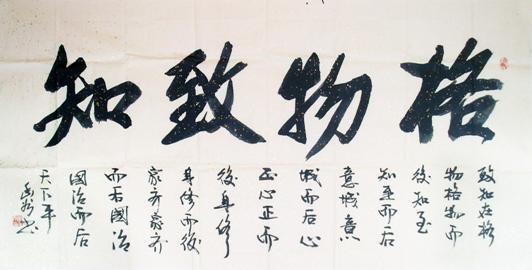 格物致知
致知在格
物格物而
後知至
知至而后
意诚意
诚而后心
正心正而
後身修
身修而後
家齐家齐
而后國治
國治而后
天下平